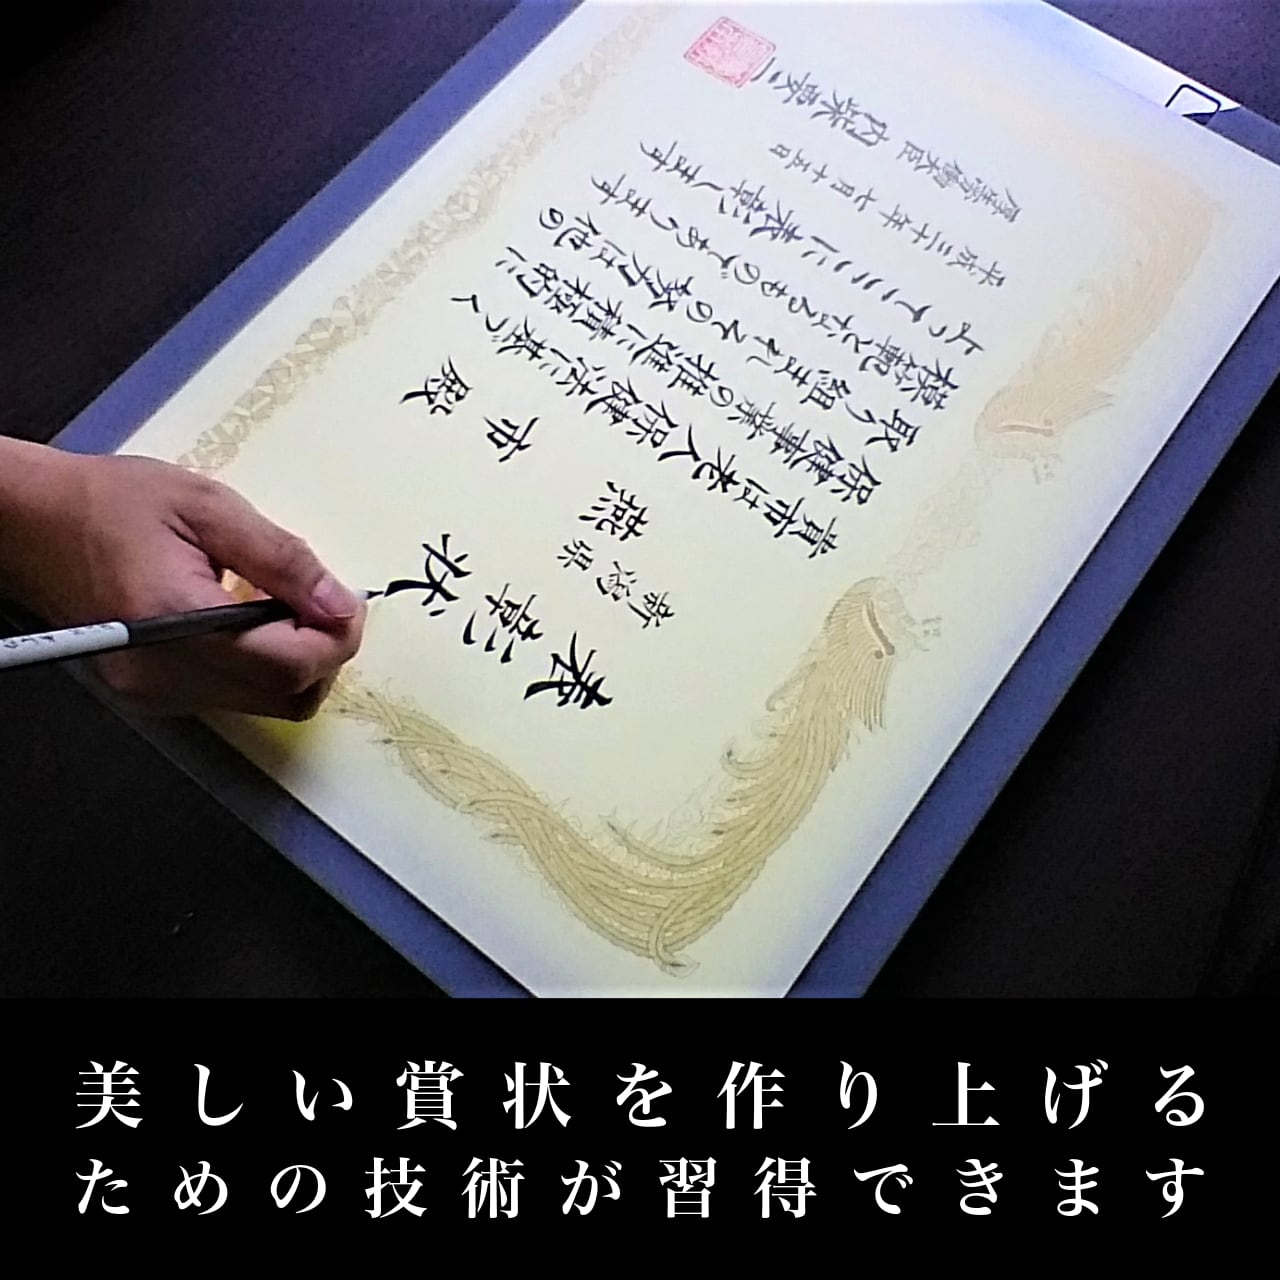 表彰状
新潟県
燕市殿
貴市は老人保健法に基づく
保健事業の推進に積極的に
取り組まれその努力は他の
模範となるものであります
よってここに表彰します
平成三十年七月十五日
厚生労働大臣
美しい賞状を作り上げる
ための技術が習得できます